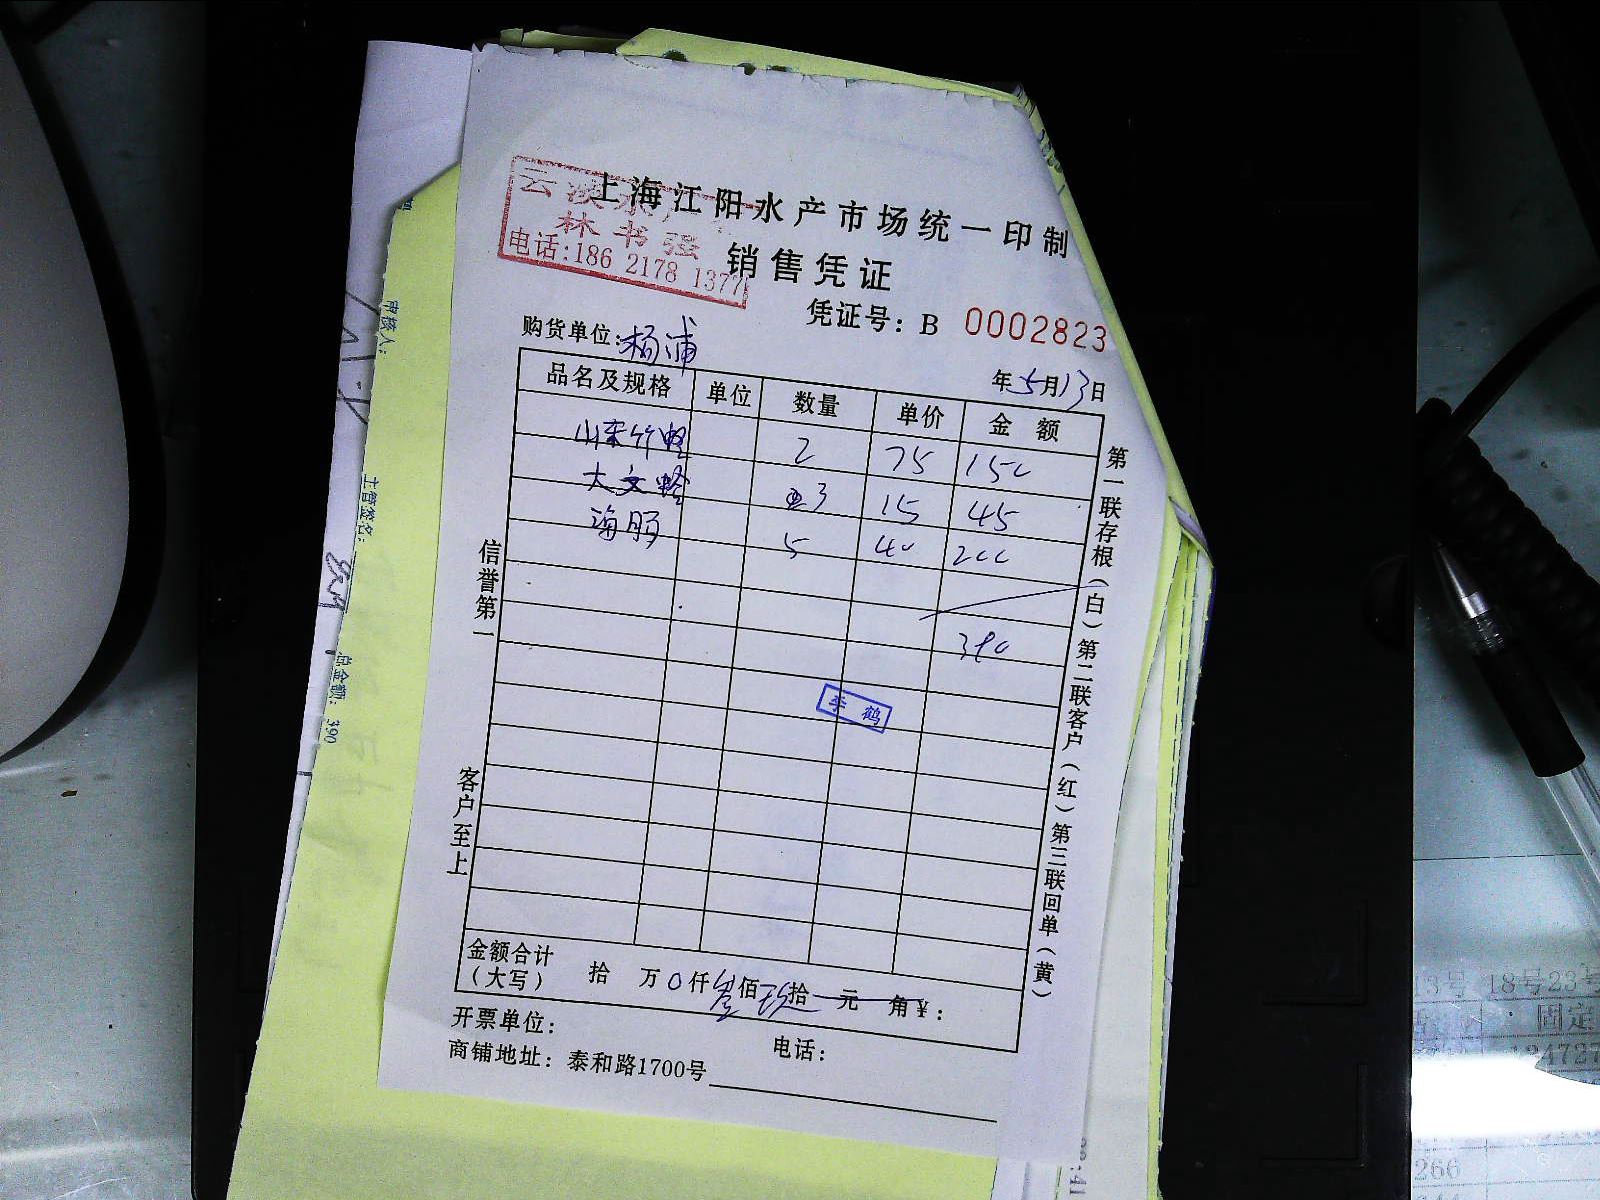 上海江阳水产市场统一印制
林书强
电话:186 2178 1377
销售凭证
凭证号: B 0002823
购货单位:杨浦
年5月13日
品名及规格 单位 数量 单价 金 额
山东竹蛏 2 75 150
大文蛤 3 15 45
海肠 5 40 200
390
李 鹤
信誉第一
客户至上
第一联存根(白)第二联客户(红)第三联回单(黄)
金额合计
(大写)
拾 万0仟叁佰玖拾 元 角¥:
开票单位:
电话:
商铺地址: 泰和路1700号
审核人:
主管签名:
总金额: 390
18号23号
固定
24727
266